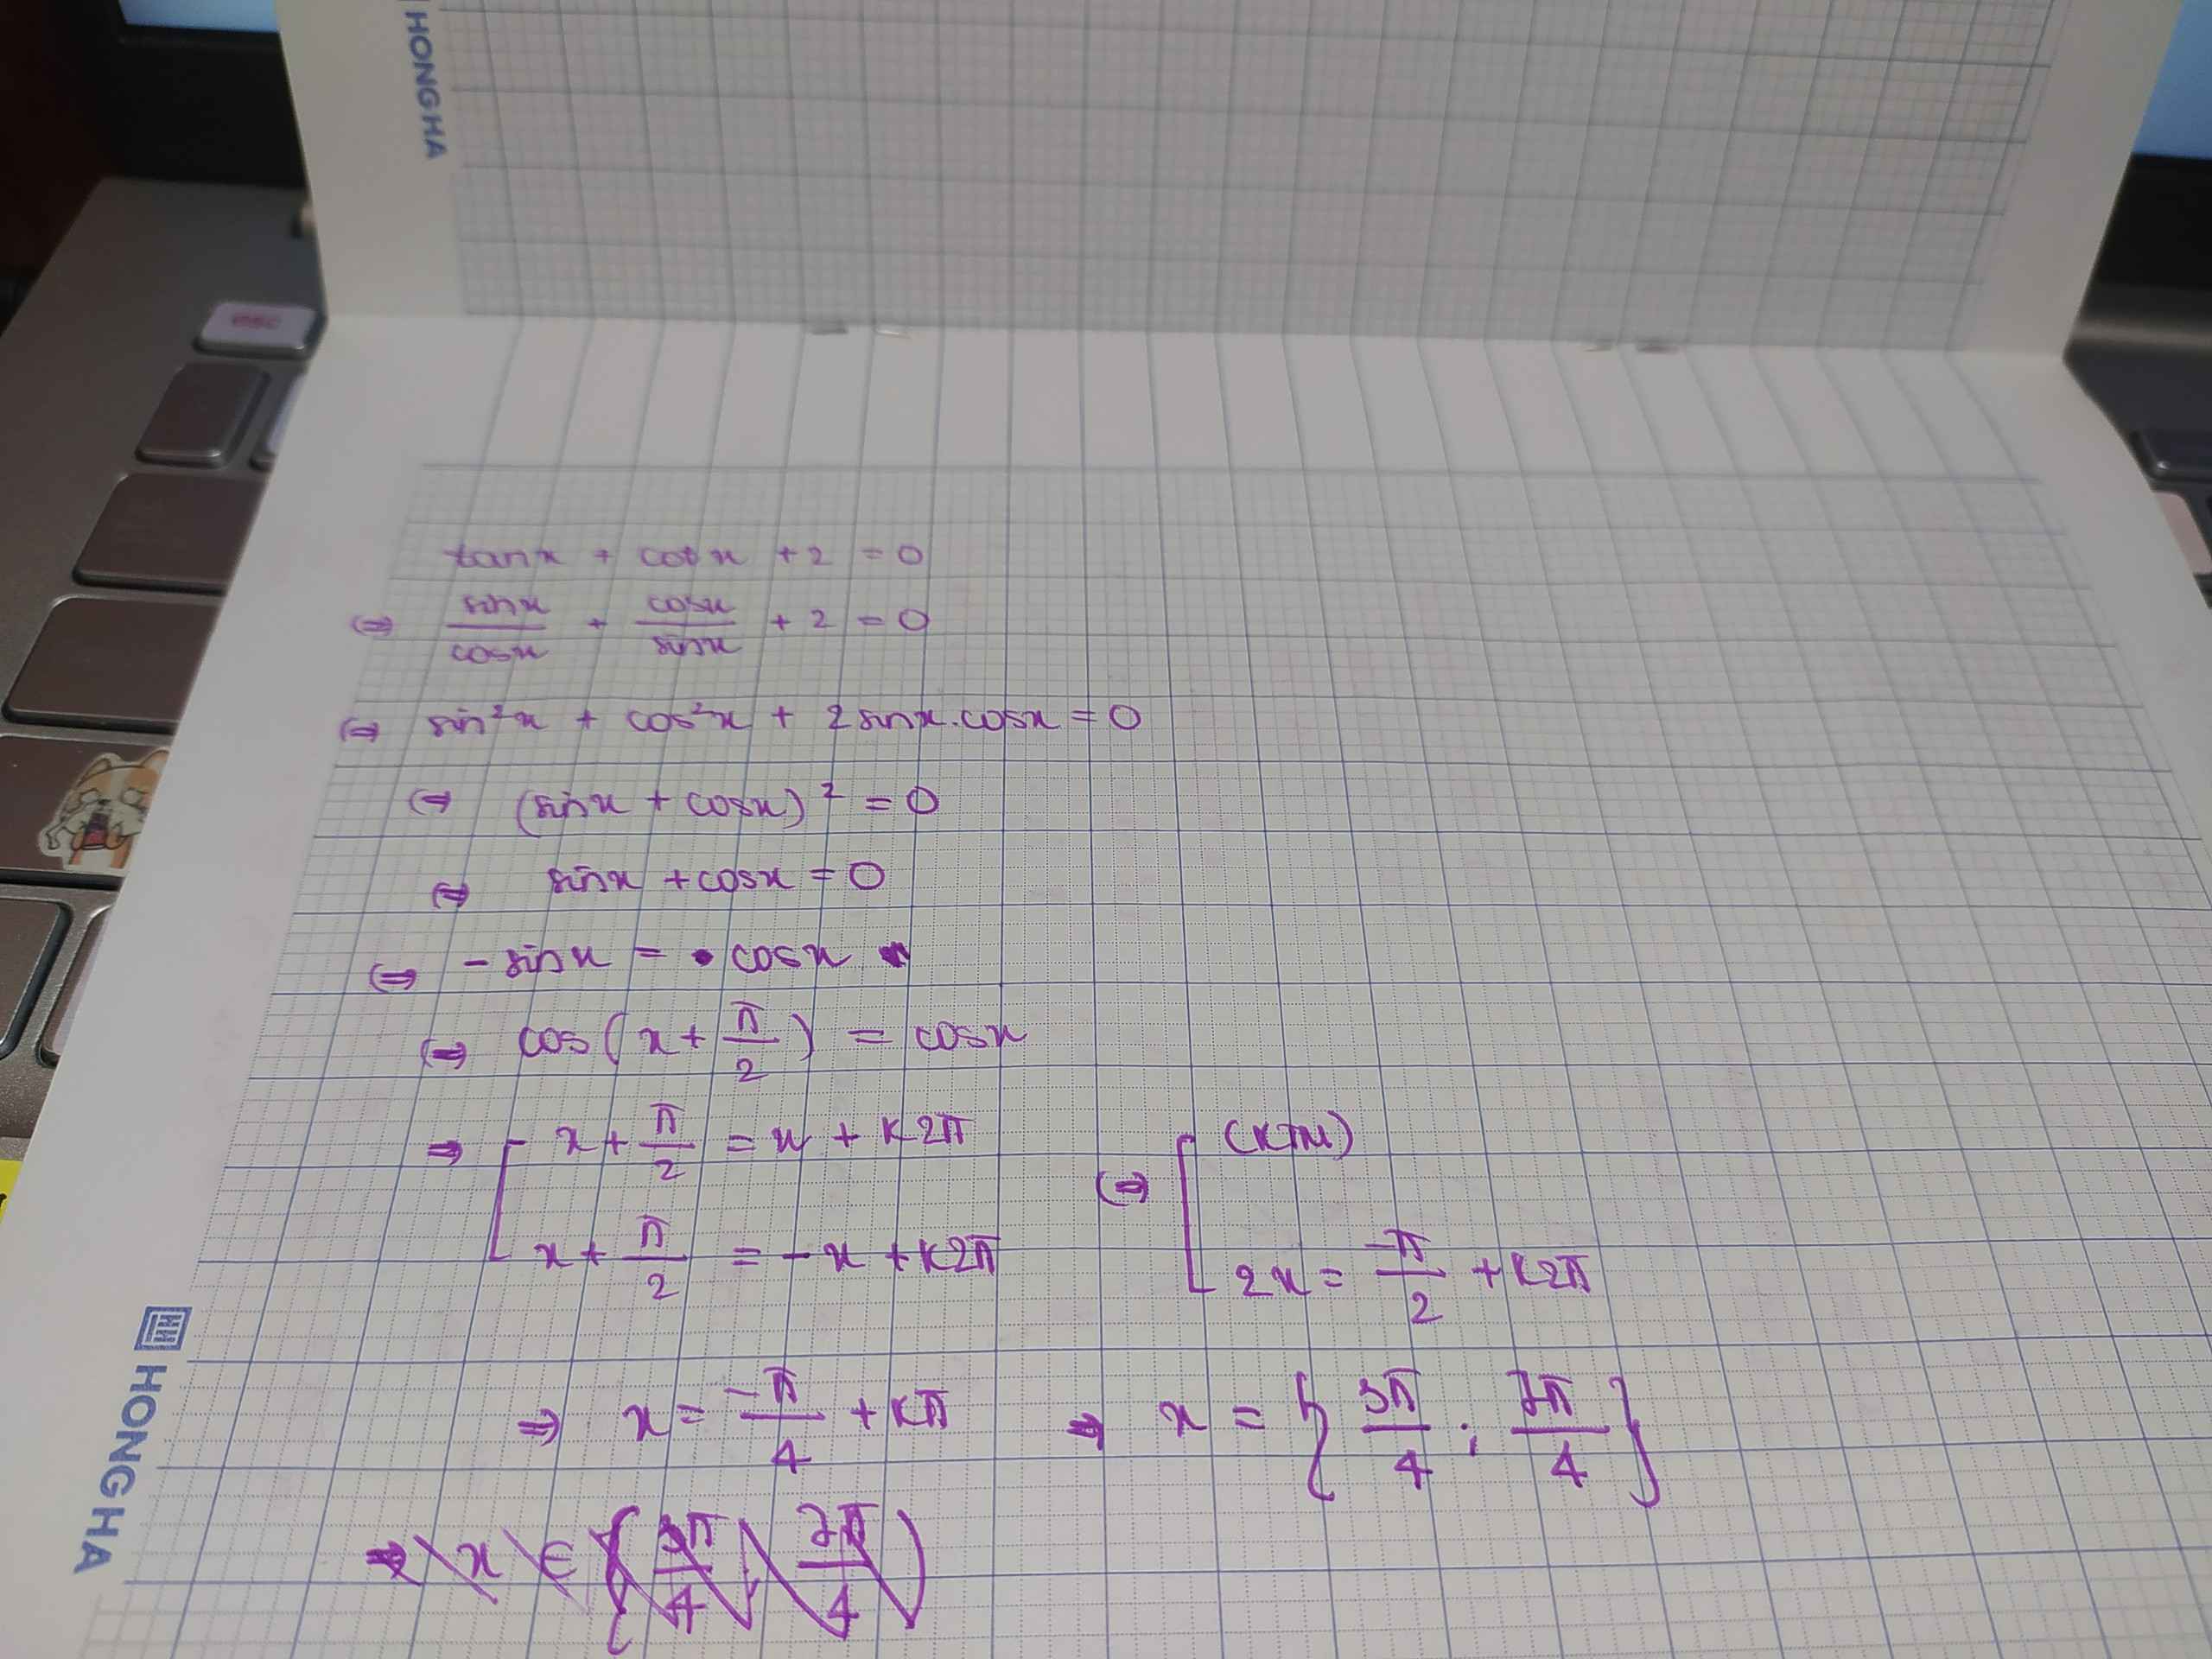 HONG HA
esc
tanx + cotx + 2 = 0
⇔ sinx/cosx + cosx/sinx + 2 = 0
⇔ sin²x + cos²x + 2sinx.cosx = 0
⇔ (sinx + cosx)² = 0
⇔ sinx + cosx = 0
⇔ - sinx = cosx
⇔ cos(x + π/2) = cosx
⇒ [ x + π/2 = x + k2π ⇔ [ (KTM)
x + π/2 = -x + k2π 2x = -π/2 + k2π
⇒ x = -π/4 + kπ ⇒ x = { 3π/4 ; 7π/4 }
⇒ x ∈ { 3π/4 ; 7π/4 }
HONG HA